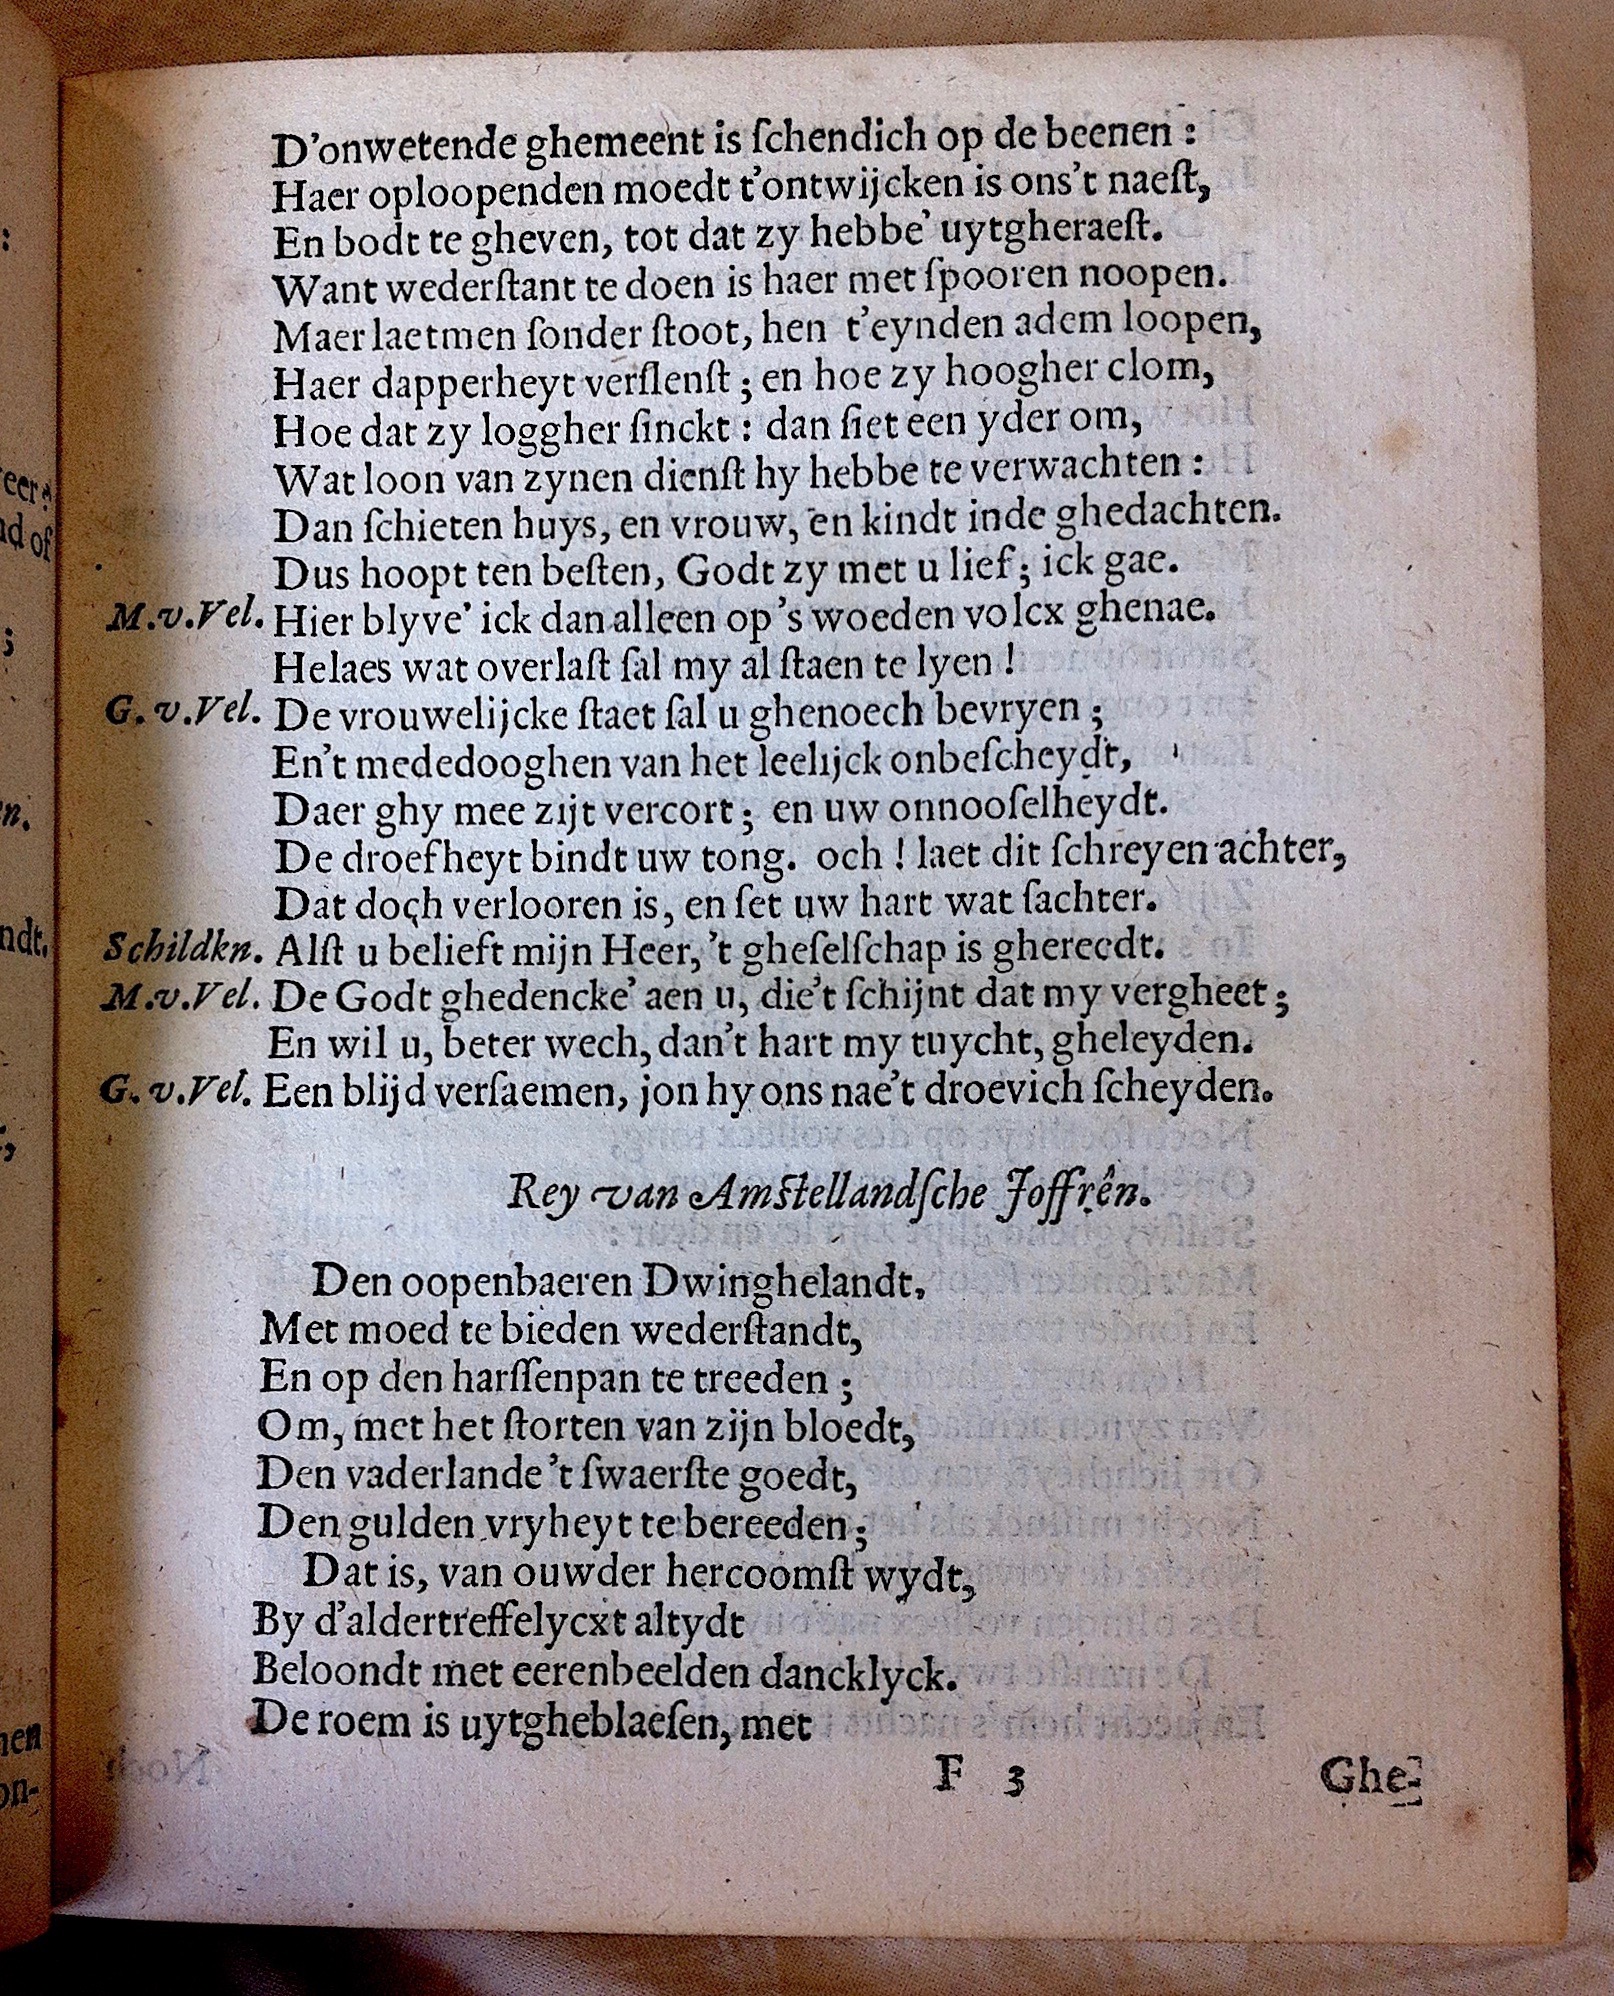 D'onwetende ghemeent is ſchendich op de beenen :
Haer oploopenden moedt t'ontwijcken is ons't naeſt,
En bodt te gheven, tot dat zy hebbe' uytgheraeſt.
Want wederſtant te doen is haer met ſpooren noopen.
Maer laetmen ſonder ſtoot, hen t'eynden adem loopen,
Haer dapperheyt verſlenſt ; en hoe zy hoogher clom,
Hoe dat zy loggher ſinckt : dan ſiet een yder om,
Wat loon van zynen dienſt hy hebbe te verwachten :
Dan ſchieten huys, en vrouw, en kindt inde ghedachten.
Dus hoopt ten beſten, Godt zy met u lief ; ick gae.
M.v.Vel. Hier blyve' ick dan alleen op 's woeden volcx ghenae.
Helaes wat overlaſt ſal my al ſtaen te lyen !
G.v.Vel. De vrouwelijcke ſtaet ſal u ghenoech bevryen ;
En't mededooghen van het leelijck onbeſcheydt,
Daer ghy mee zijt vercort ; en uw onnooſelheydt.
De droefheyt bindt uw tong. och ! laet dit ſchreyen achter,
Dat doch verlooren is, en ſet uw hart wat ſachter.
Schildkn. Alſt u belieft mijn Heer, 't gheſelſchap is ghereedt.
M.v.Vel. De Godt ghedencke' aen u, die't ſchijnt dat my vergheet ;
En wil u, beter wech, dan't hart my tuycht, gheleyden.
G.v.Vel. Een blijd verſaemen, jon hy ons nae't droevich ſcheyden.
Rey van Amſtellandſche Joffrên.
Den oopenbaeren Dwinghelandt,
Met moed te bieden wederſtandt,
En op den harſſenpan te treeden ;
Om, met het ſtorten van zijn bloedt,
Den vaderlande 't ſwaerſte goedt,
Den gulden vryheyt te bereeden ;
Dat is, van ouwder hercoomſt wydt,
By d'aldertreffelycxt altydt
Beloondt met eerenbeelden dancklyck.
De roem is uytgheblaeſen, met
F 3 Ghe-